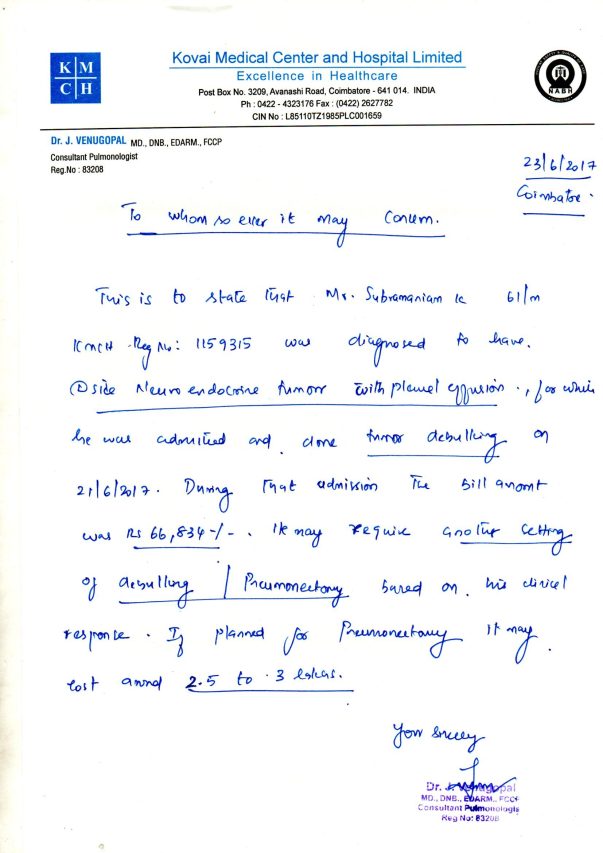 K M
C H
Kovai Medical Center and Hospital Limited
Excellence in Healthcare
Post Box No. 3209, Avanashi Road, Coimbatore - 641 014. INDIA
Ph : 0422 - 4323176 Fax : (0422) 2627782
CIN No : L85110TZ1985PLC001659
NABH
Dr. J. VENUGOPAL MD., DNB., EDARM., FCCP
Consultant Pulmonologist
Reg.No : 83208
23/6/2017
Coimbatore.
To whom so ever it may Concern.
This is to state that Mr. Subramaniam K 61/m
KMCH Reg No: 1159315 was diagnosed to have.
side Neuro endocrine tumor with pleural effusion., for which
he was admitted and done tumor debulking on
21/6/2017. During that admission the bill amount
was Rs 66,834/-. He may require another setting
of debulking / Pneumonectomy based on his clinical
response. If planned for Pneumonectomy it may
cost around 2.5 to 3 lakhs.
Your sincerely
Dr. J. Venugopal
MD., DNB., EDARM., FCCP
Consultant Pulmonologis
Reg No: 83208